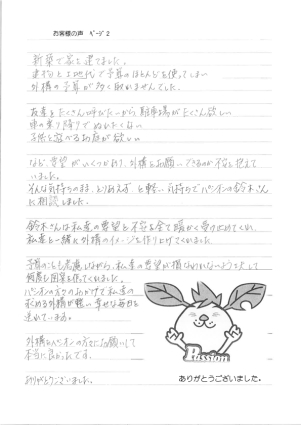 お客様の声 ページ2
新築で家を建てました。
建物と土地代で予算のほとんどを使ってしまい
外構の予算が多く取れませんでした。
友達をたくさん呼びたいから駐車場がたくさん欲しい
車の乗り降りでぬれたくない
子供と遊べるお庭が欲しい
など、要望がいくつかあり、外構をお願いできるのか不安を抱えて
いました。
そんな気持ちのまま、とりあえず、と軽い気持ちでパッションの鈴木さん
に相談しました。
鈴木さんは私達の要望と不安を全て暖かく受け止めてくれ、
私達と一緒に外構のイメージを作り上げてくれました
予算のことも考慮しながら、私達の要望が損なわれないよう工夫して
何度も図案を作ってくれました。
パッションの方々のおかげで私達の
求める外構が叶い幸せな毎日を
送れています。
外構をパッションの方にお願いして
本当に良かったです。
ありがとうございました。
Passion
ありがとうございました。